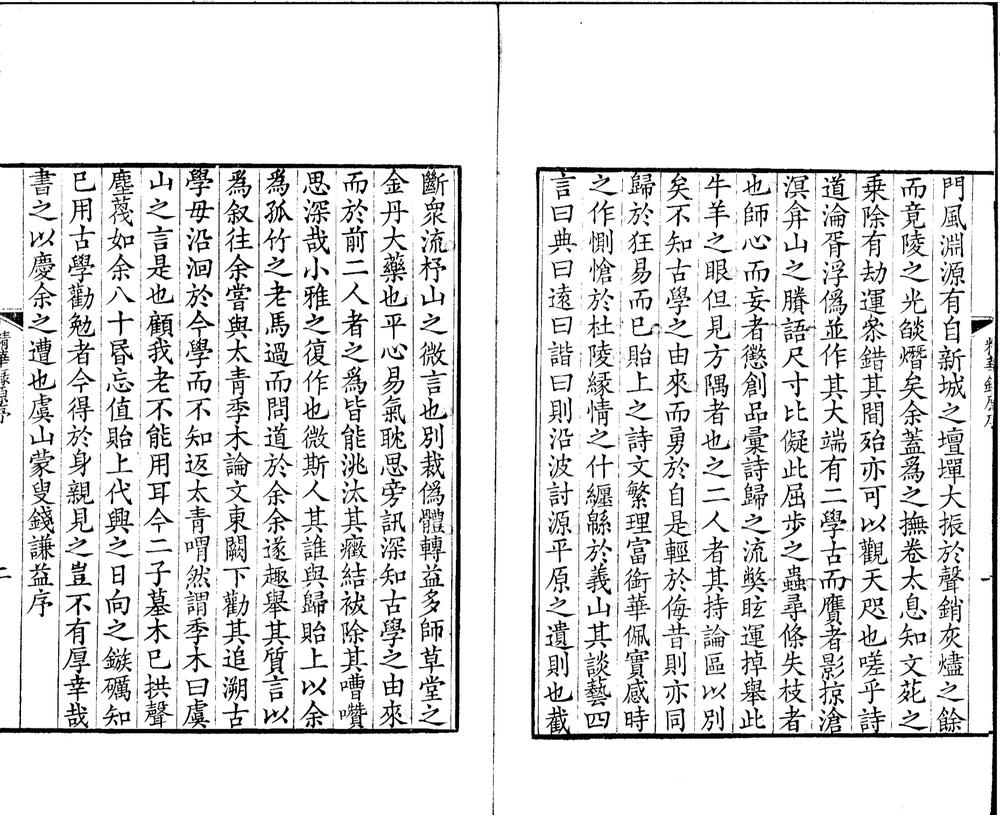 門風淵源有自新城之壇墠大振於聲銷灰燼之餘
而竟陵之光燄熸矣余蓋爲之撫卷太息知文苑之
乗除有劫運叅錯其間殆亦可以觀天咫也嗟乎詩
道淪胥浮僞並作其大端有二學古而贋者影掠滄
溟弇山之賸語尺寸比儗此屈步之蟲尋條失枝者
也師心而妄者懲創品彙詩歸之流獘眩運掉舉此
牛羊之眼但見方隅者也之二人者其持論區以别
矣不知古學之由來而勇於自是輕於侮昔則亦同
歸於狂易而已貽上之詩文繁理富銜華佩實感時
之作惻愴於杜陵緣情之什纏緜於義山其談藝四
言曰典曰遠曰諧曰則沿波討源平原之遺則也截
斷衆流杼山之微言也别裁僞體轉益多師草堂之
金丹大藥也平心易氣耽思旁訊深知古學之由來
而於前二人者之爲皆能洮汰其癥結祓除其嘈囋
思深哉小雅之復作也微斯人其誰與歸貽上以余
爲孤竹之老馬過而問道於余余遂趣舉其質言以
爲叙往余嘗與太青季木論文東闕下勸其追溯古
學毋沿洄於今學而不知返太青喟然謂季木曰虞
山之言是也顧我老不能用耳今二子墓木已拱聲
塵蔑如余八十昬忘值貽上代興之日向之鏃礪知
已用古學勸勉者今得於身親見之豈不有厚幸哉
書之以慶余之遭也虞山蒙叟錢謙益序
二